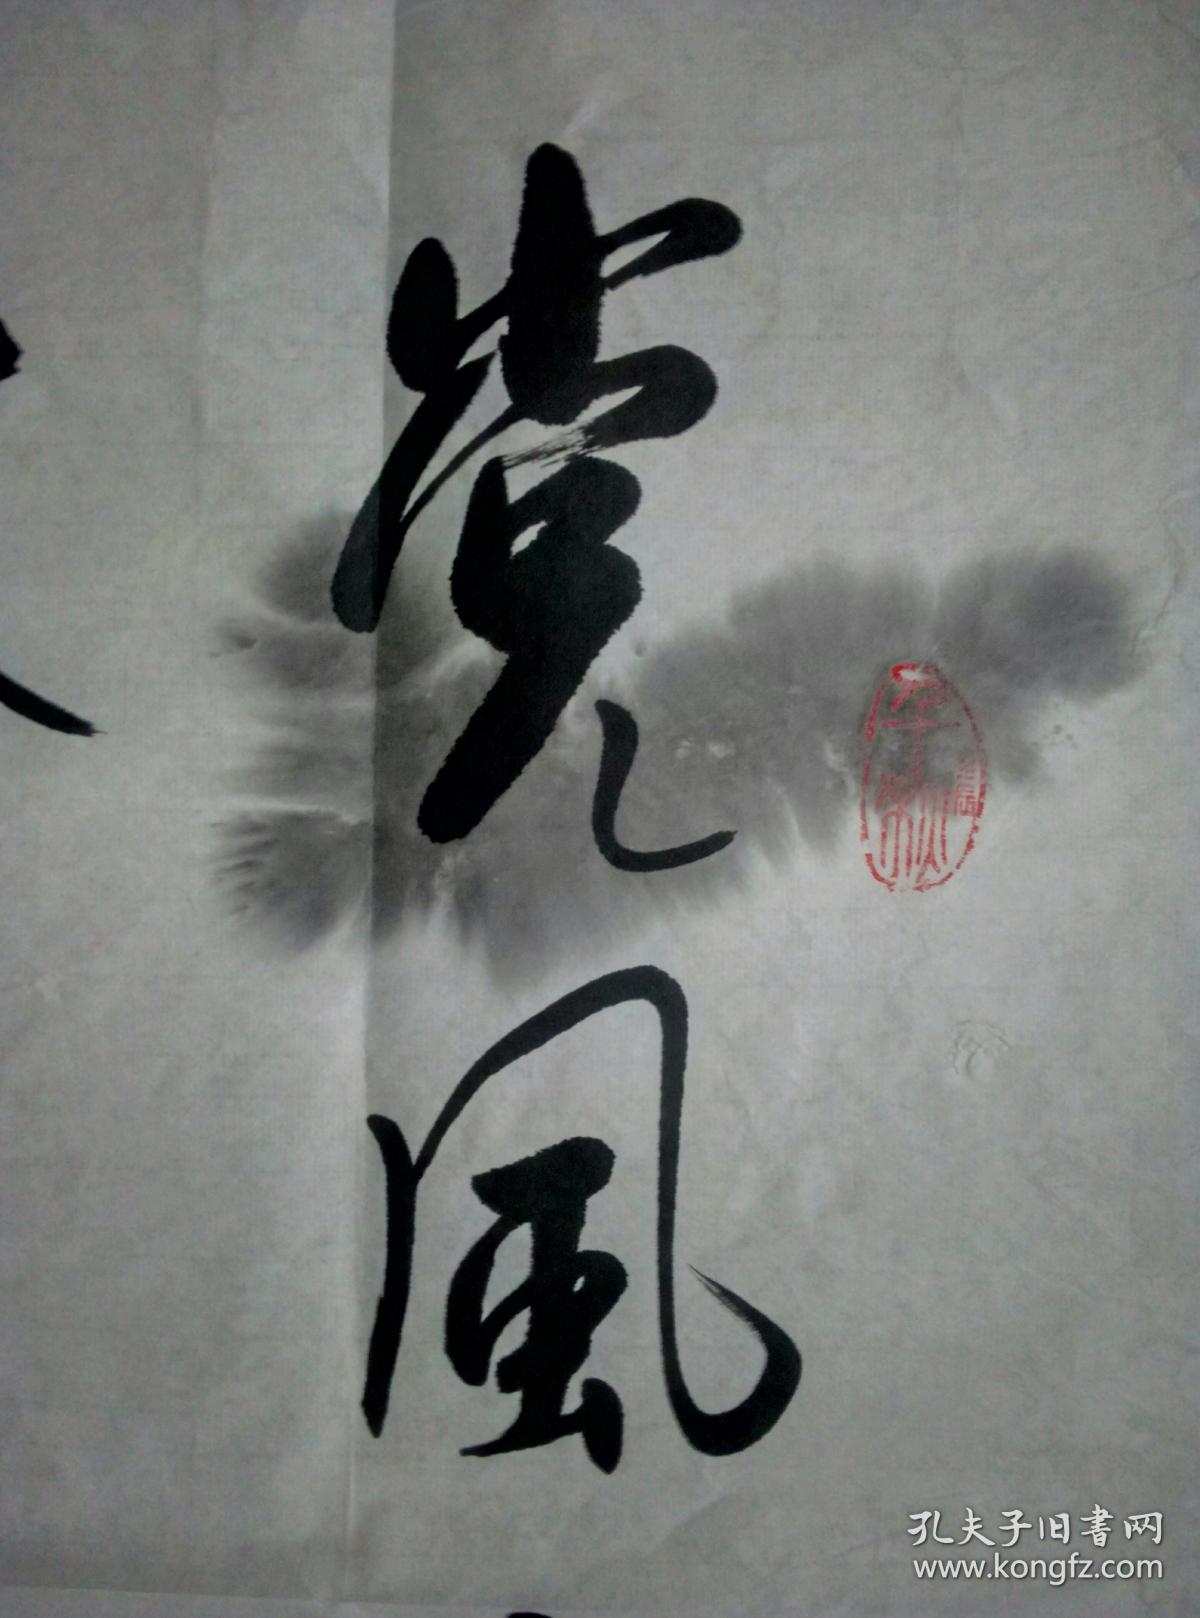 党風
千秋
孔夫子旧書网
www.kongfz.com